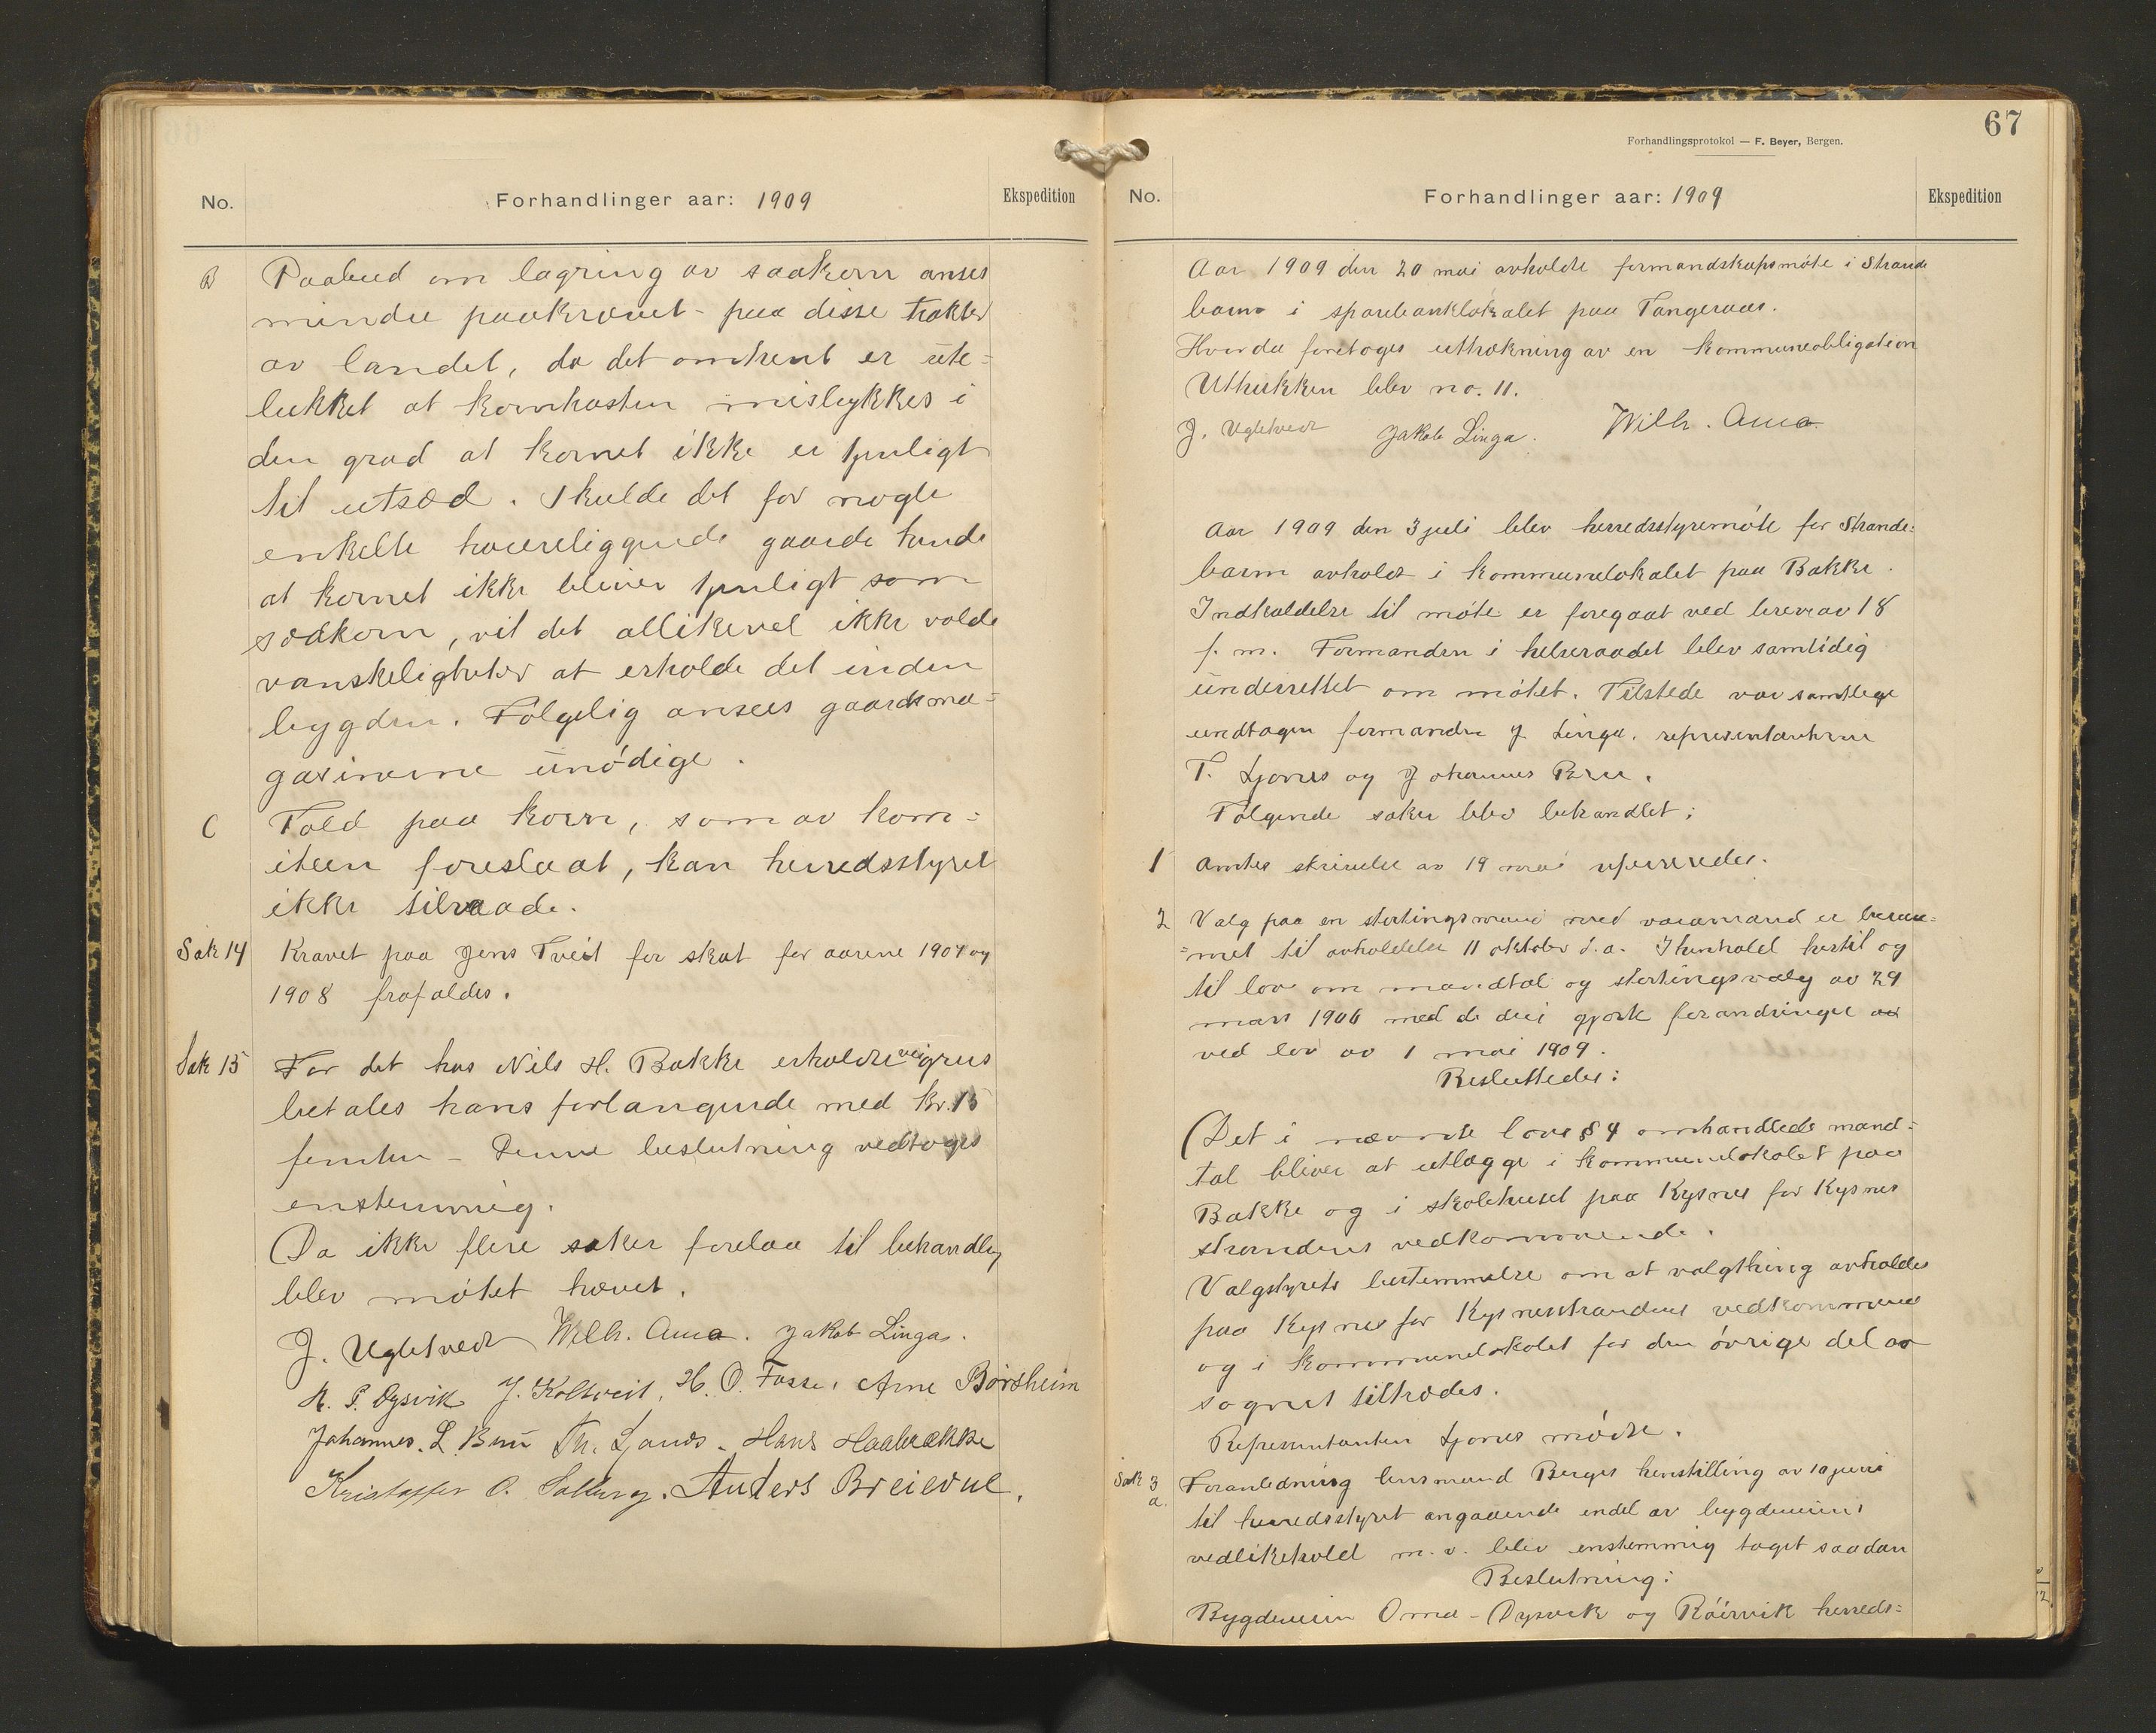 No. Forhandlinger aar: 1909 Ekspedition
B Paabud om lagring av saakorn anses
mindre paakrævet - paa disse trakter
av landet, da det omtrent er ute=
lukket at kornhøsten mislykkes i
den grad at kornet ikke er spiligt
til utsæd. Skulde det for nogle
enkelte høiereliggende gaarde hende
at kornet ikke bliver spiligt som
sædkorn, vil det allikevel ikke volde
vanskeligheter at erholde det inden
bygden. Følgelig ansees gaardsma=
gasinerne unødige.
C Told paa korn, som av kom=
iteen foreslaat, kan herredsstyret
ikke tilraade.
Sak 14 Kravet paa Jens Tveit for skat for aarene 1907 og
1908 frafaldes.
Sak 15 For det hos Nils H. Bakke erholdte veigrus
betales hans forlangende med kr. 15
femten - Denne beslutning vedtoges
enstemmig.
Da ikke flere saker forelaa til behandling
blev møtet hævet.
J. Ugletvedt Wilh. Oma. Jakob Linga.
R. P. Dysvik J. Koltveit, H. O. Fosse, Arne Børsheim
Johannes. L. Bru Th. Ljones. Hans Haabrække
Kristoffer O. Solberg. Anders Breievne.
67
Forhandlingsprotokol — F. Beyer, Bergen.
No. Forhandlinger aar: 1909 Ekspedition
Aar 1909 den 20 mai avholdte formandskapsmøte i Strande
barm i sparebanklokalet paa Tangeraas.
Hvorda foretoges uttrækning av en kommuneobligation
Uttrukken blev no. 11.
J. Ugletvedt Jakob Linga. Wilh. Oma
Aar 1909 den 3 juli blev herredsstyremøte for Strande=
barm avholdt i kommunelokalet paa Bakke.
Indkaldelse til møte er foregaat ved brev av 18
f. m. Formanden i helseraadet blev samtidig
underrettet om møtet. Tilstede var samtlige
undtagen formanden J. Linga, representanterne
T. Ljones og Johannes Bru.
Følgende saker blev behandlet:
1 Amtes skrivelse av 19 mai refereredes.
2 Valg paa en stortingsmand med varamand er bestem=
=met til avholdelse 11 oktober d. a. I henhold hertil og
til lov om mandtal og stortingsvalg av 24
mars 1906 med de deri gjorte forandringer
ved lov av 1 mai 1909.
Besluttedes:
Det i nævnte lovs § 4 omhandlede mand=
tal bliver at utlægge i kommunelokalet paa
Bakke og i skolehuset paa Kysnes for Kysnes
strandens vedkommende.
Valgstyrets bestemmelse om at valgthing avholdes
paa Kysnes for Kysnesstrandens vedkommende
og i kommunelokalet for den øvrige del av
sognet tiltrædes.
Representanten Ljones møtte.
Sak 3 a. Foranledning lensmand Berges henstilling av 10 juni
til herredsstyret angaaende endel av bygdeveiens
vedlikehold m. v. blev enstemmig taget saadan
Beslutning:
Bygdeveien Oma - Dysvik og Røirvik herreds=